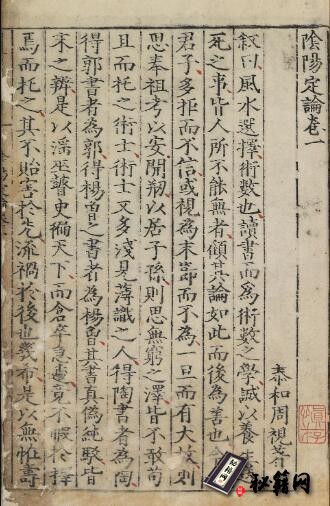 陰陽定論卷一
泰和周視
敘曰風水選擇術數也讀書而為術數之學誠以養生送
死之事皆人所不能無者傾其論如此而後為善也今
君子多拒而不信或視為末節而不為一旦而有大故則
思奉祖考以安開剏以居子孫則思無窮之澤皆不敢苟
且而托之術士術士又多淺見薄識之人得陶書者為陶
得郭書者為郭得楊曾之書者為楊曾其書真偽純駁皆
未之辨是以淫巫瞽史徧天下而倉卒急遽竟不暇於擇
焉而托之其不貽害於先流禍於後也幾希是以無恠壽
秘籍网
秘籍网